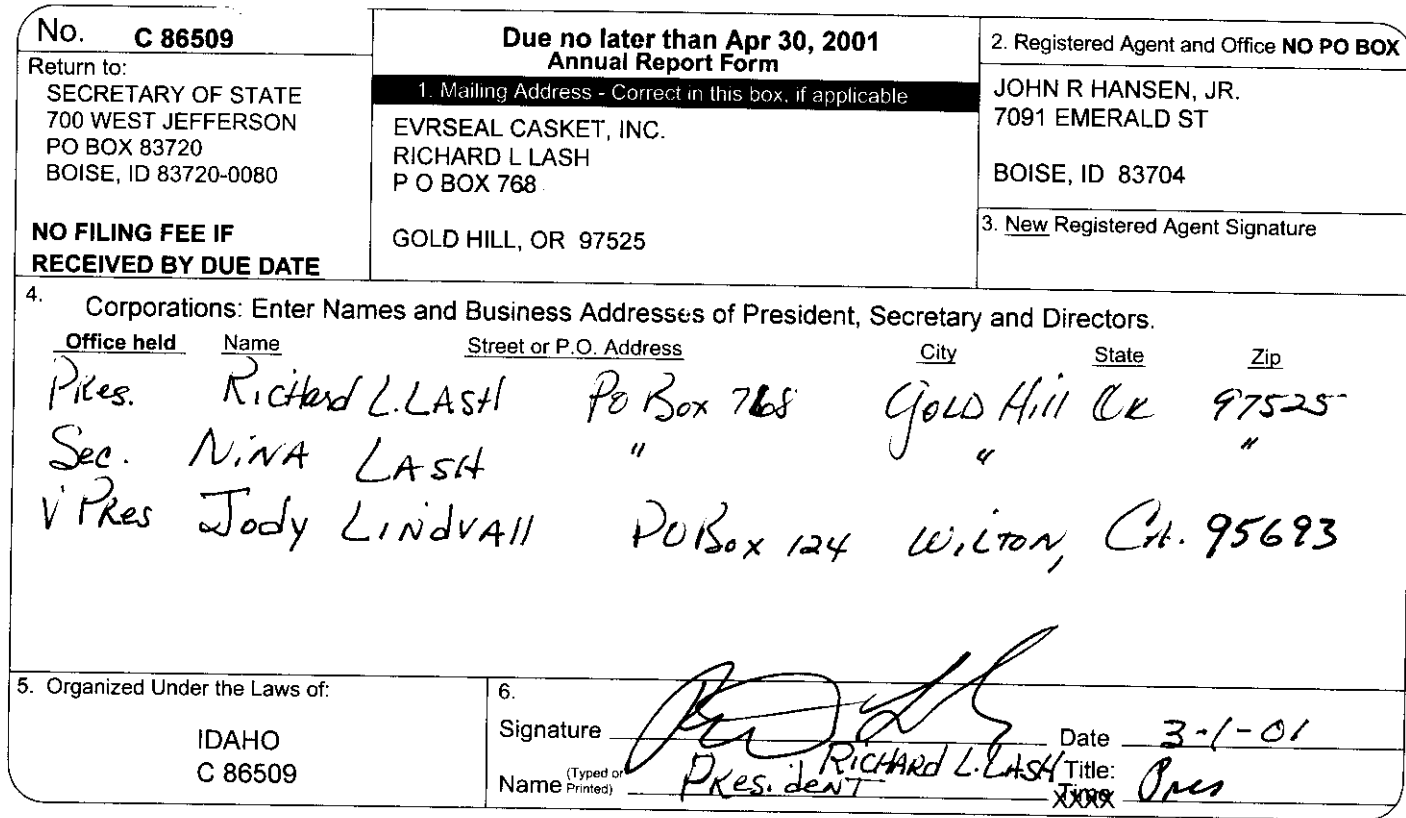 No. C 86509
Return to:
SECRETARY OF STATE
700 WEST JEFFERSON
PO BOX 83720
BOISE, ID 83720-0080
NO FILING FEE IF
RECEIVED BY DUE DATE
Due no later than Apr 30, 2001
Annual Report Form
1. Mailing Address - Correct in this box, if applicable
EVRSEAL CASKET, INC.
RICHARD L LASH
P O BOX 768
GOLD HILL, OR 97525
2. Registered Agent and Office NO PO BOX
JOHN R HANSEN, JR.
7091 EMERALD ST
BOISE, ID 83704
3. New Registered Agent Signature
4. Corporations: Enter Names and Business Addresses of President, Secretary and Directors.
Office held Name Street or P.O. Address City State Zip
PRes. RicHard L. LASH PO Box 768 GOLD Hill OR 97525
Sec. NiNA LASH " " "
V PRes Jody LiNdVAll PO Box 124 WiLTON, CA. 95693
5. Organized Under the Laws of:
IDAHO
C 86509
6.
Signature Date 3-1-01
Name (Typed or Printed) PResideNT RICHARd L. LASH Title: Pres